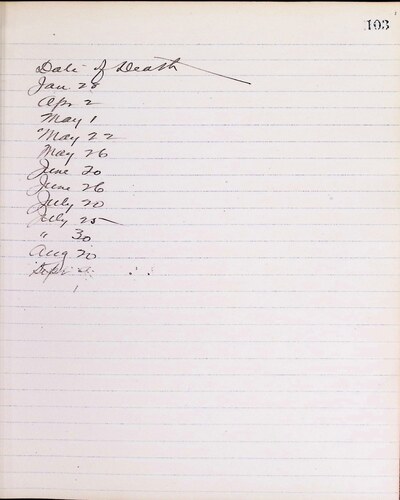 103
Date of Death
Jan 28
Apr 2
May 1
May 22
May 26
June 20
June 26
July 20
July 25
" 30
Aug 20